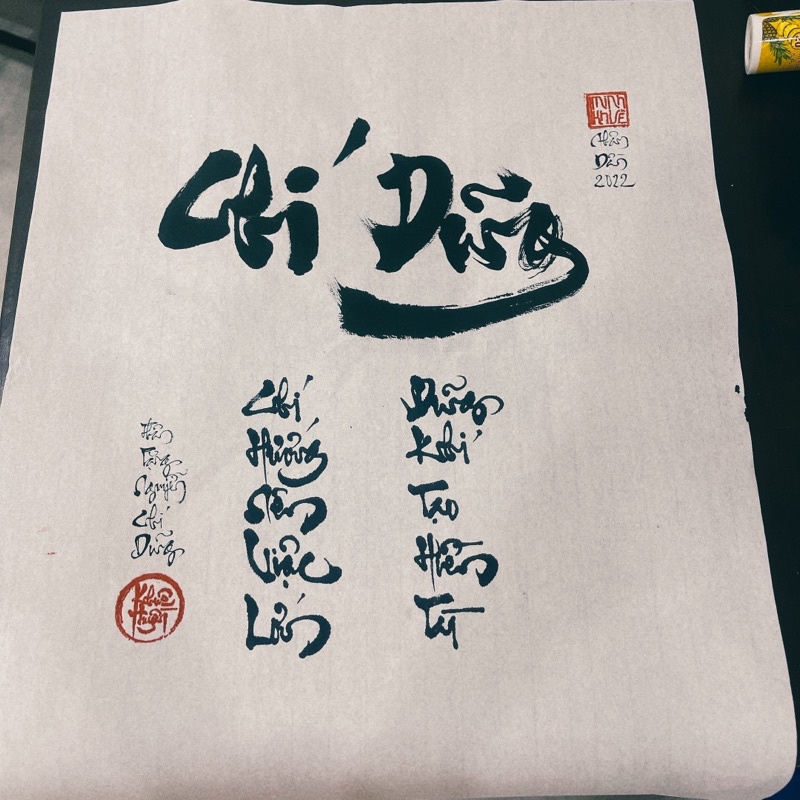 MINH
KHUÊ
Nhâm
Dần
2022
Chí Dũng
Chí
Hướng
Nên
Việc
Lớn
Dũng
Khí
Tạo
Hiền
Tài
Tặng
Nguyễn
Chí
Dũng
Khuê